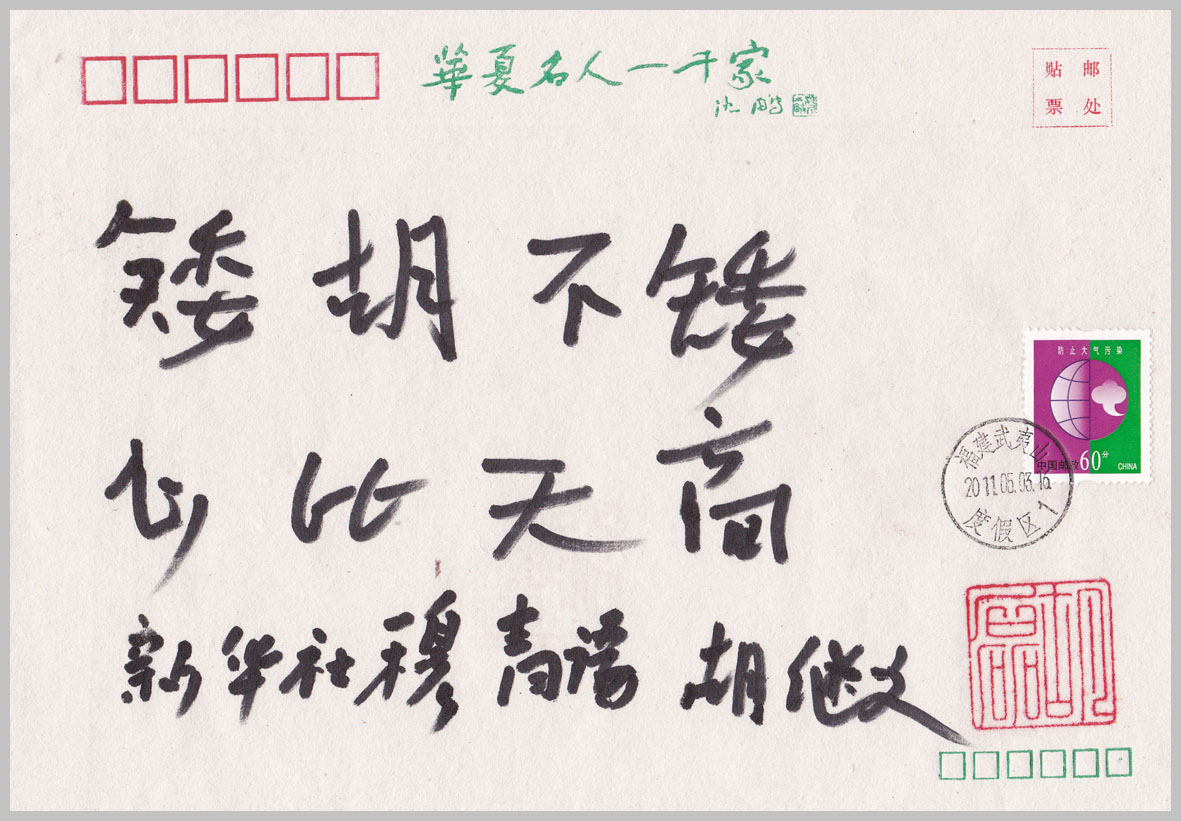 華夏名人一千家
沈鹏
贴 邮
票 处
矮胡不矮
心比天高
新华社穆青誉 胡继文
防止大气污染
中国邮政 60分 CHINA
福建武夷山
2011.05.03.16
度假区1